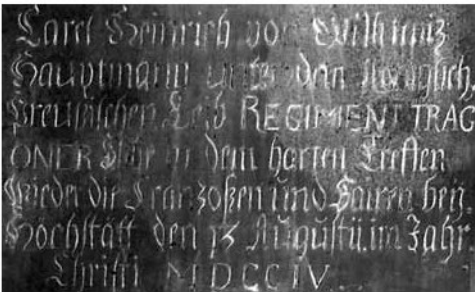 Carel Heinrich von
Hauptmann unter dem Königlich
Preussischen Leib REGIMENT TRAG
ONER in dem harten Treffen
Wieder die Franzoßen und bey
Hochstätt den 13 Augusti im Jahr
Christi MDCCIV